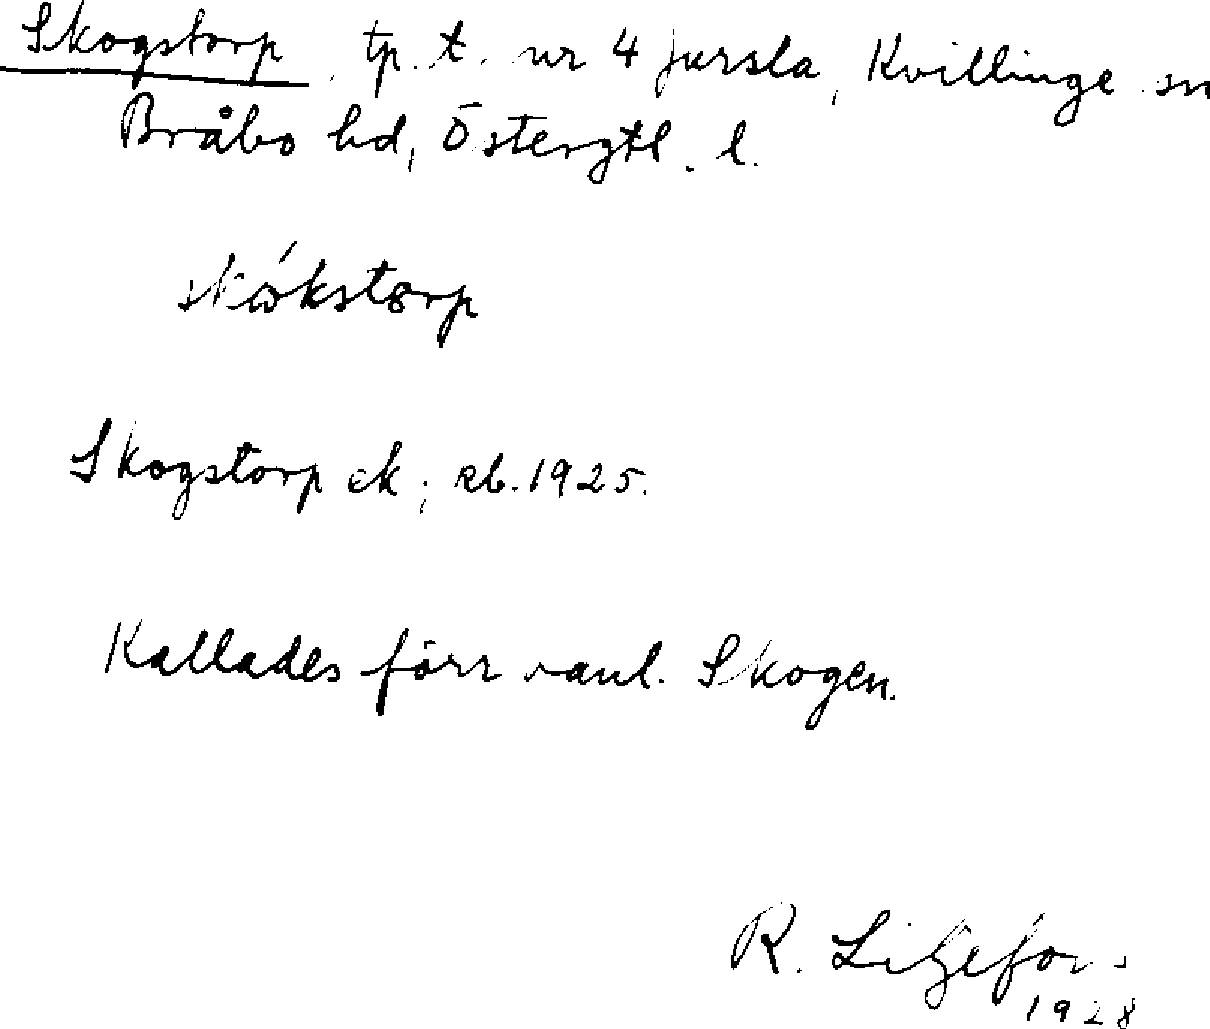 Skogstorp, tp. t. nr 4 Jursla, Kvillinge sn
Bråbo hd, Östergtl. l.
skókstorp
Skogstorp ek; rb. 1925.
Kallades förr vanl. Skogen.
R. Liljefors
1928